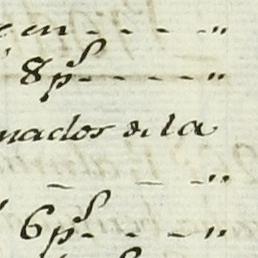 en - - - - "
8 p.s - - - - "
mados de la
- - - "
6 p.s - - - "